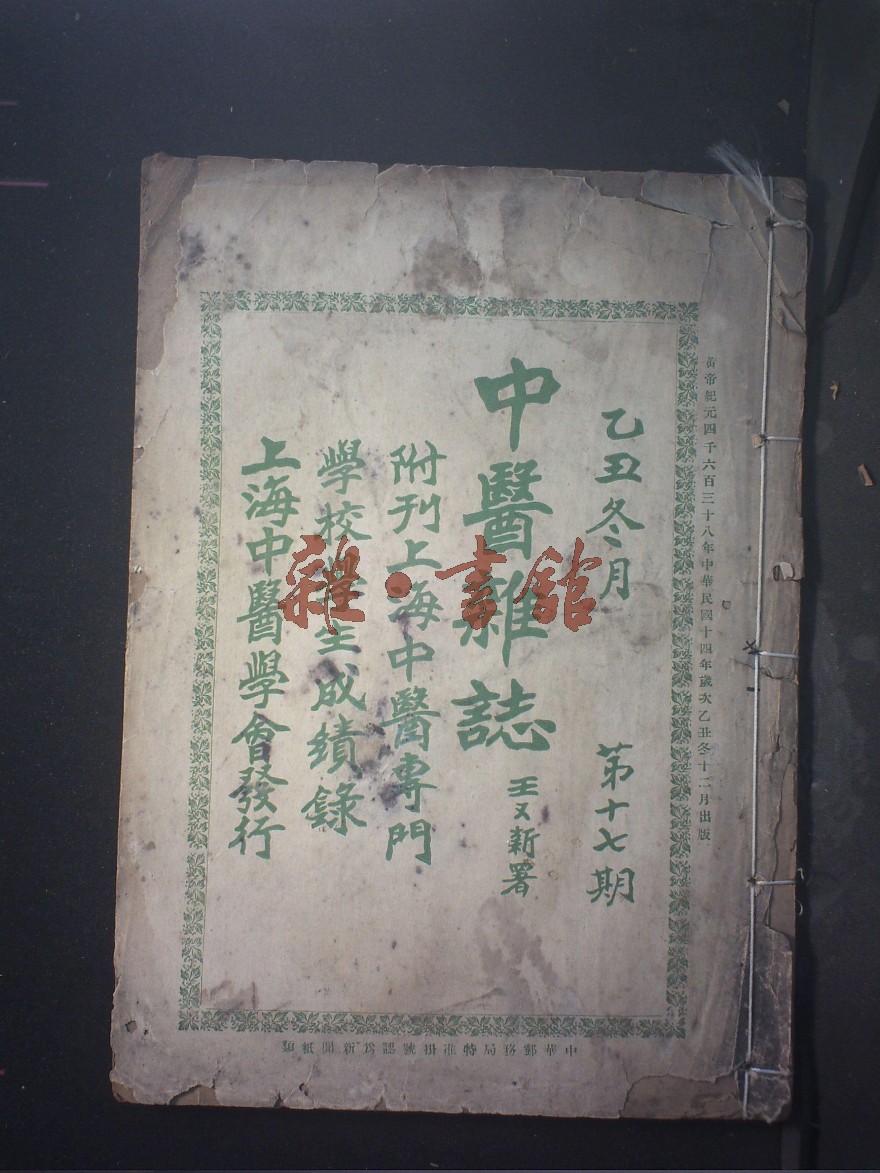 黃帝紀元四千六百三十八年中華民國十四年歲次乙丑冬十二月出版
乙丑冬月
第十七期
中醫雜誌
王一新署
附刊上海中醫專門
學校學生成績錄
上海中醫學會發行
中華郵務局特准掛號認為新聞紙類
雜·書館